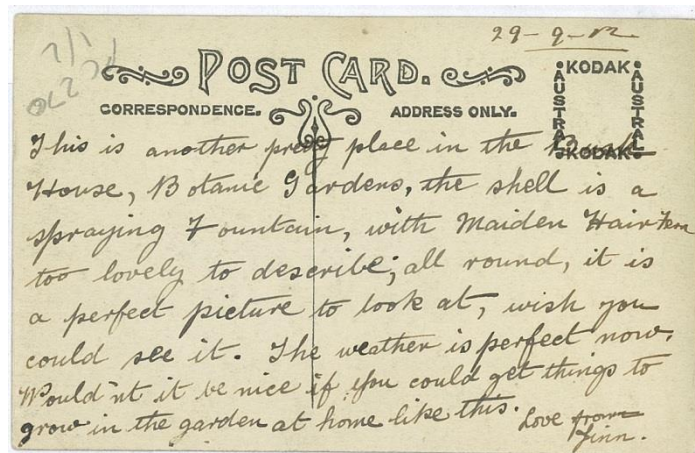 29-9-12
POST CARD.
CORRESPONDENCE.
ADDRESS ONLY.
AUSTRAL
KODAK
AUSTRAL
KODAK
This is another pretty place in the Bush
House, Botanic Gardens, the shell is a
spraying Fountain, with Maiden Hair Fern
too lovely to describe; all round, it is
a perfect picture to look at, wish you
could see it. The weather is perfect now.
Would'nt it be nice if you could get things to
grow in the garden at home like this.
Love from